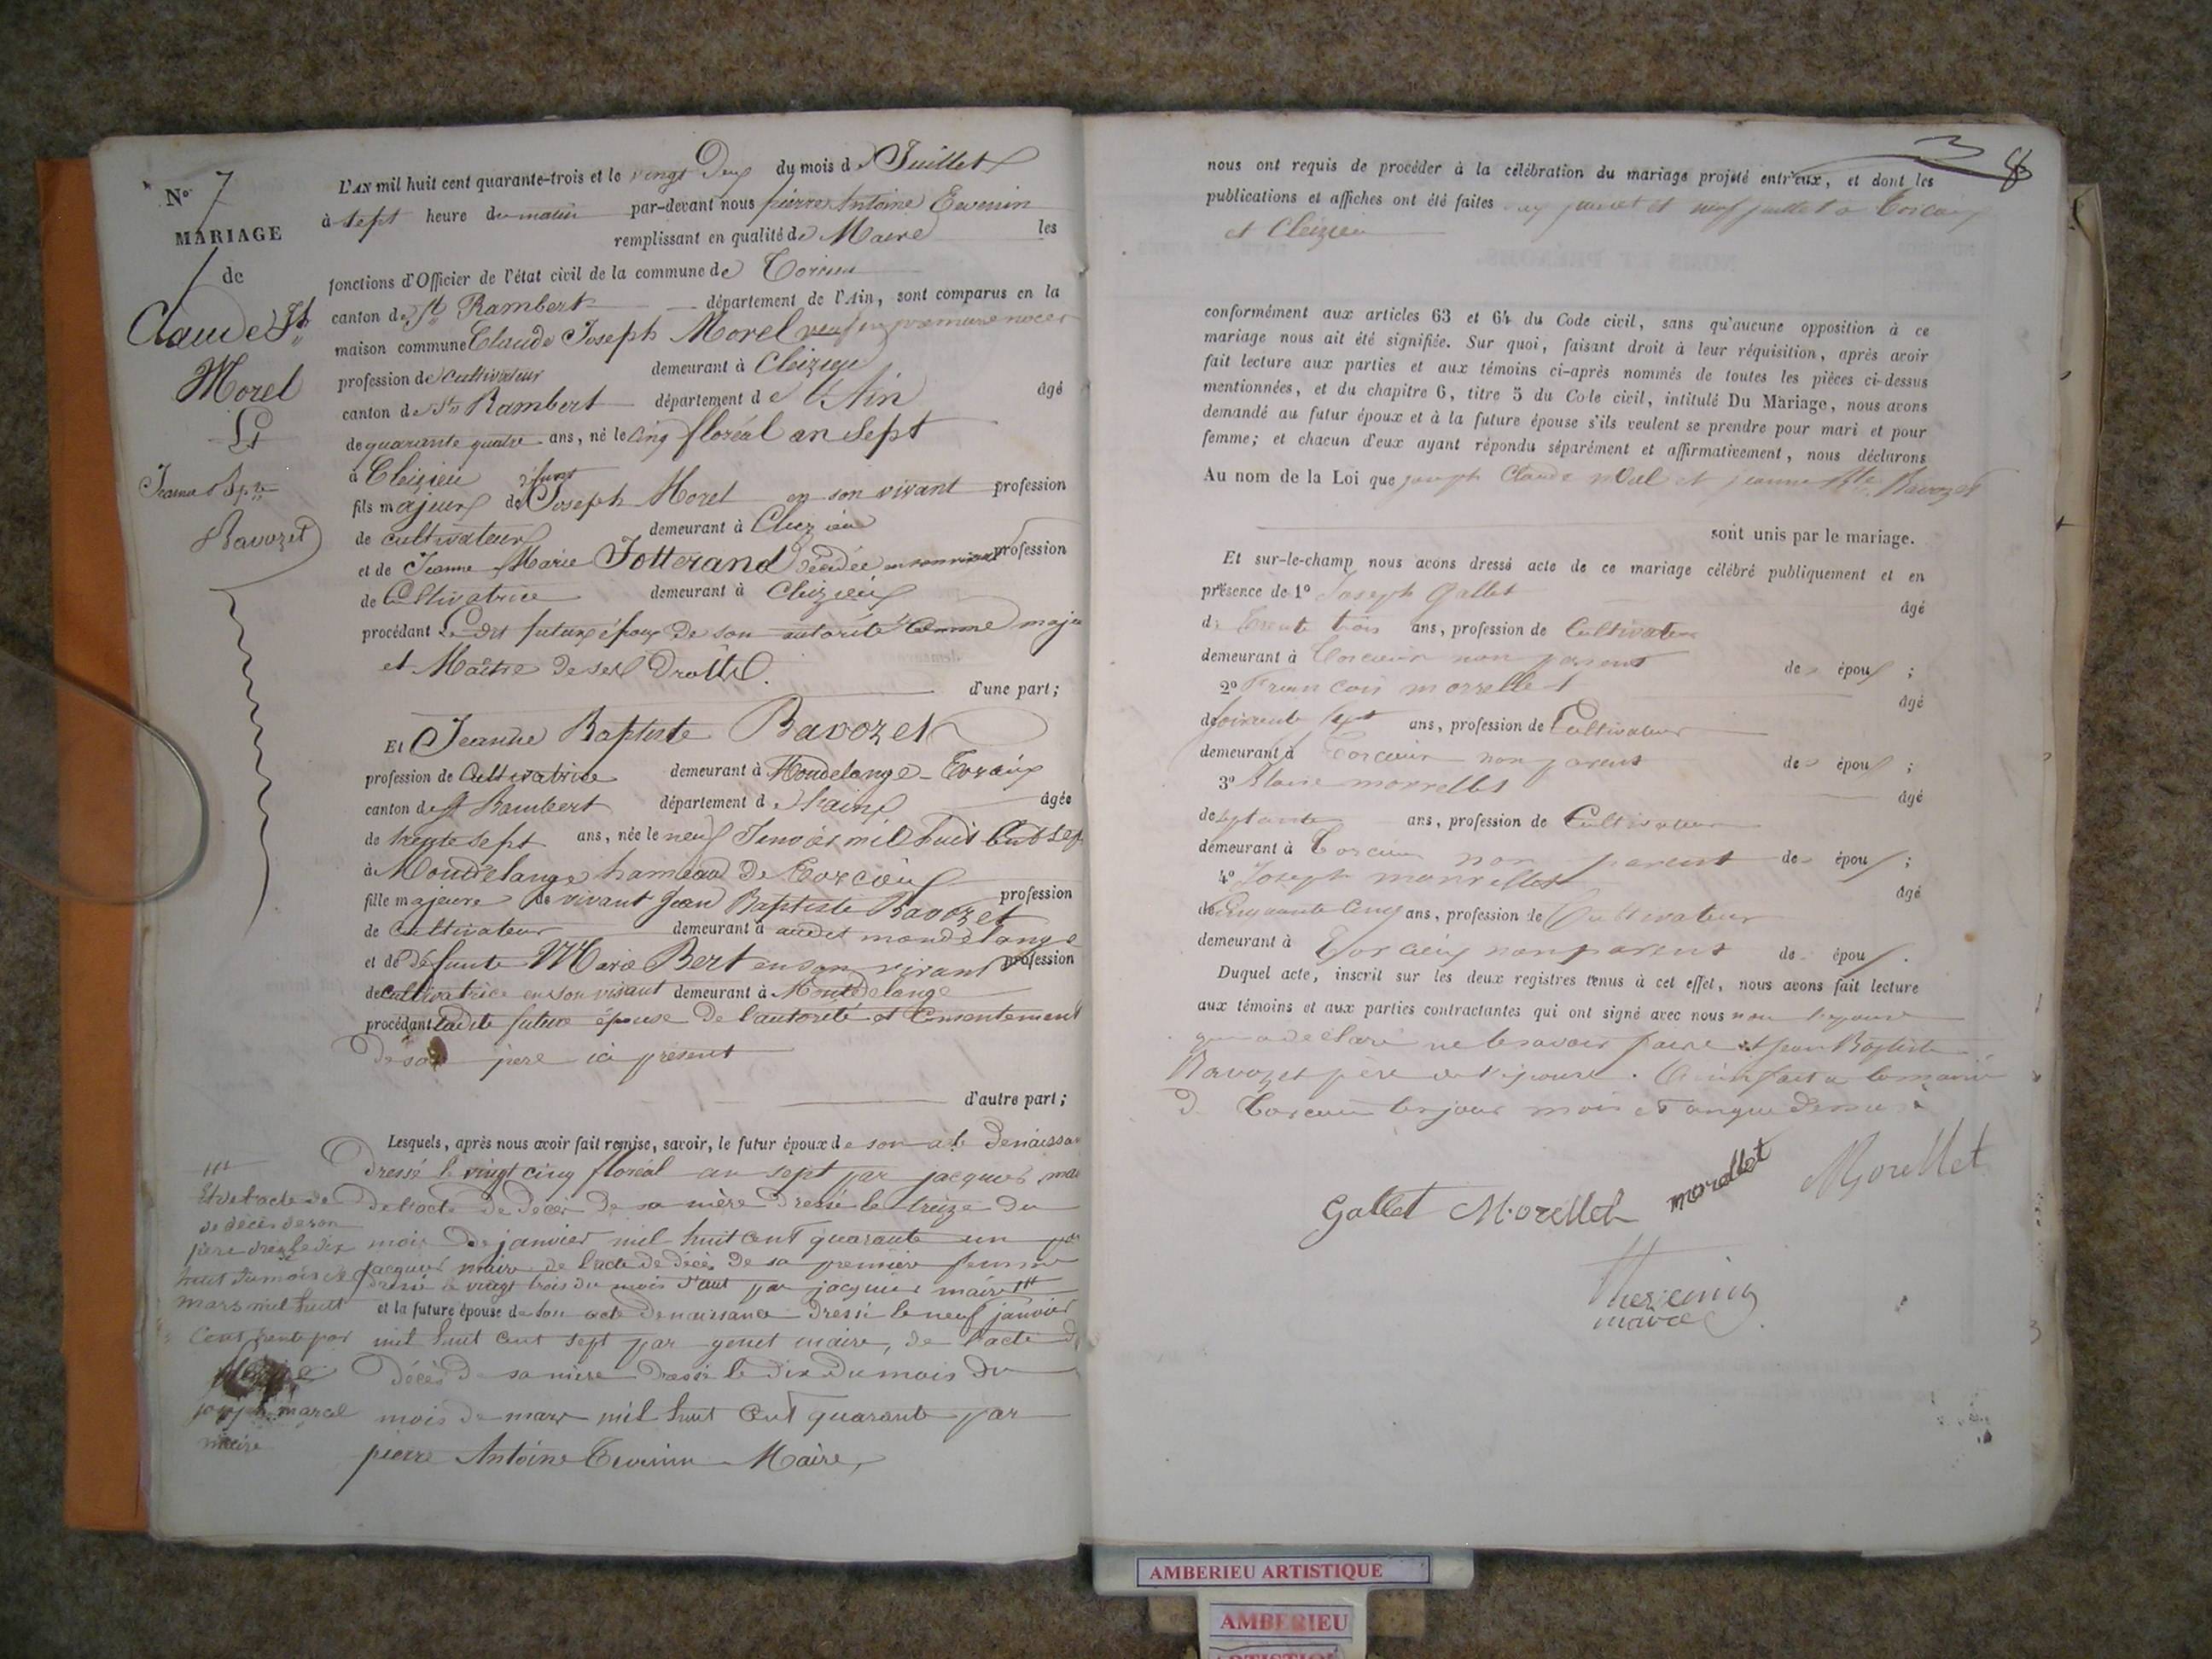 N° 7
MARIAGE
de
Claude Jh
Morel
Et
Jeanne Bpte
Bavozet
L'AN mil huit cent quarante-trois et le vingt Deux du mois de Juillet
à sept heure du matin par-devant nous pierre Antoine Tevenin
remplissant en qualité de Maire les
fonctions d'Officier de l'état civil de la commune de Torcieu
canton de St Rambert département de l'Ain, sont comparus en la
maison commune Claude Joseph Morel veuf en premiere noces
profession de cultivateur demeurant à Cleizieu
canton de St Rambert département de l'Ain âgé
de quarante quatre ans, né le cinq floréal an sept
à Cleizieu
fils majeur de défunt Joseph Morel en son vivant profession
de cultivateur demeurant à Cleizieu
et de Jeanne Marie Jotterand décédée en son vivant profession
de Cultivatrice demeurant à Cleizieu
procédant Le dit futur époux de son autorité Comme majeu
et Maître de ses Droits.
d'une part;
Et Jeanne Baptiste Bavozet
profession de Cultivatrice demeurant à Mondelange
canton de St Rambert département de âgée
de trente sept ans, née le neuf Janvier mil huit Cent sept
à Moudelange hameau de Torcieu
fille majeure de vivant Jean Baptiste Bavozet profession
de Cultivateur demeurant à audit mondelange
et de défunte Marie Bert en son vivant profession
de Cultivatrice en son vivant demeurant à Montdelange
procédant Ladite future épouse de l'autorité et Consentement
de son père ici présent
d'autre part;
Lesquels, après nous avoir fait remise, savoir, le futur époux de son acte de naissan
Dressé le vingt cinq floréal an sept par jacquier mai
de l'acte de décès de sa mère dressé le treize du
mois de janvier mil huit cent quarante un par
jacquier maire de l'acte de décès de sa première femme
dressé le vingt trois du mois d'aut par jacquier maire
et la future épouse de son acte de naissance dressé le neuf janvier
mil huit cent sept par genet maire, de l'acte de
Décès de sa mère dressé le dix du mois du
mois de mars mil huit cent quarante par
pierre Antoine Tevenin Maire,
Et de l'acte de
de décès de son
père dressé le dix
huit du mois de
mars mil huit
Cent trente par
joseph marcel
maire
3 8
nous ont requis de procéder à la célébration du mariage projeté entr'eux, et dont les
publications et affiches ont été faites juillet et neuf juillet à Torcieu
et Cleizieu
conformément aux articles 63 et 64 du Code civil, sans qu'aucune opposition à ce
mariage nous ait été signifiée. Sur quoi, faisant droit à leur réquisition, après avoir
fait lecture aux parties et aux témoins ci-après nommés de toutes les pièces ci-dessus
mentionnées, et du chapitre 6, titre 5 du Code civil, intitulé Du Mariage, nous avons
demandé au futur époux et à la future épouse s'ils veulent se prendre pour mari et pour
femme; et chacun d'eux ayant répondu séparément et affirmativement, nous déclarons
Au nom de la Loi que joseph Claude morel et jeanne Bte Bavozet
sont unis par le mariage.
Et sur-le-champ nous avons dressé acte de ce mariage célébré publiquement et en
présence de 1° Joseph Gallet âgé
de Trente trois ans, profession de Cultivateur
demeurant à Torcieu non parent des époux;
2° Francois morrellet âgé
de soixante sept ans, profession de Cultivateur
demeurant à Torcieu non parent des époux;
3° morrellet âgé
de septante ans, profession de Cultivateur
demeurant à Torcieu non parent des époux;
4° Joseph morrellet âgé
de Cinquante Cinq ans, profession de Cultivateur
demeurant à Torcieu non parent des époux.
Duquel acte, inscrit sur les deux registres tenus à cet effet, nous avons fait lecture
aux témoins et aux parties contractantes qui ont signé avec nous non l'épouse
qui a déclaré ne le savoir faire et jean Baptiste
Bavozet père de l'épouse. Ainsi fait à la mairie
de Torcieu les jour mois et an que dessus
Gallet Morellet morellet Morellet
Thevenin
maire
AMBERIEU ARTISTIQUE
AMBERIEU
ARTISTIQUE